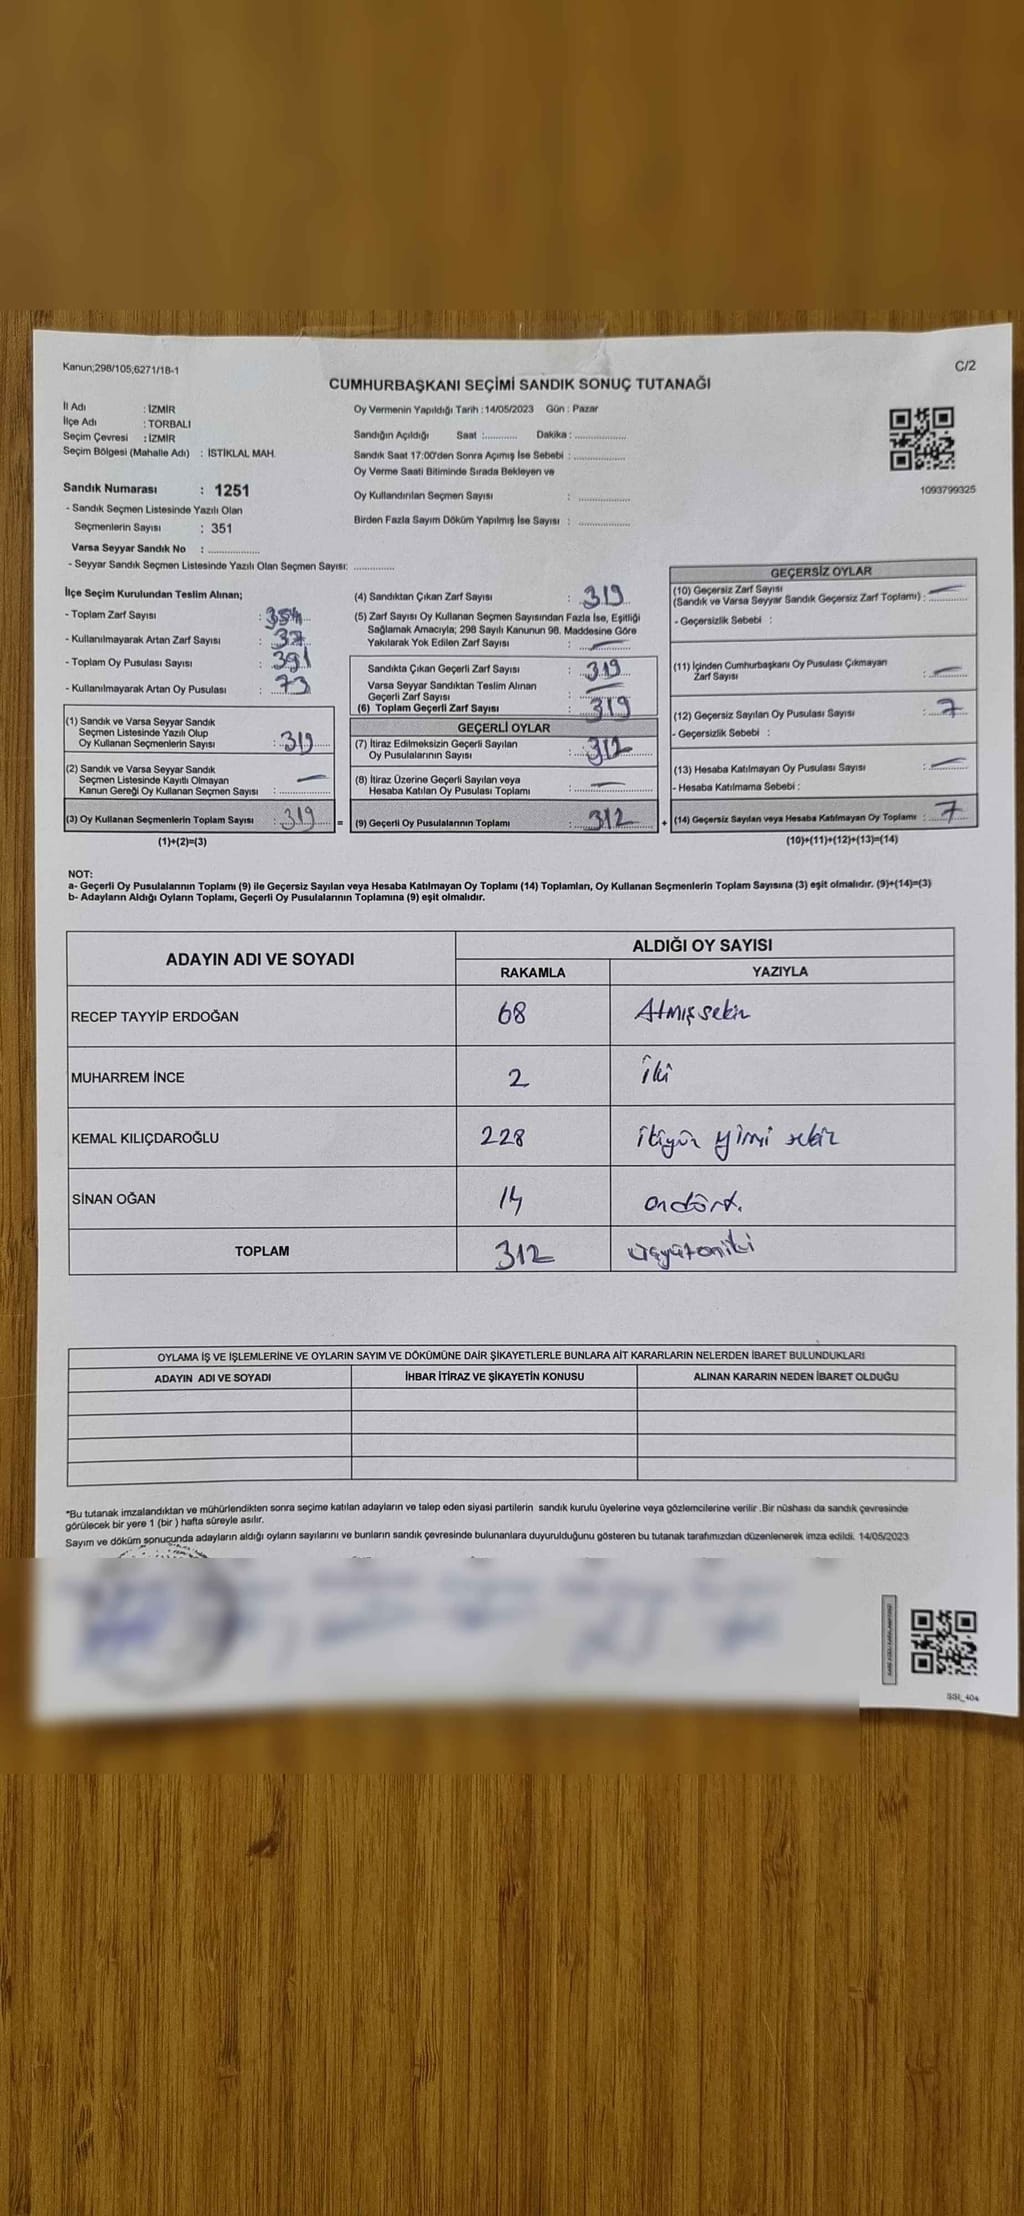 Kanun;298/105,6271/18-1
C/2
CUMHURBAŞKANI SEÇİMİ SANDIK SONUÇ TUTANAĞI
İl Adı : İZMİR
İlçe Adı : TORBALI
Seçim Çevresi : İZMİR
Seçim Bölgesi (Mahalle Adı) : İSTİKLAL MAH.
Oy Vermenin Yapıldığı Tarih : 14/05/2023 Gün : Pazar
Sandığın Açıldığı Saat :........... Dakika : ................
Sandık Saat 17:00'den Sonra Açımış İse Sebebi : ................
Oy Verme Saati Bitiminde Sırada Bekleyen ve
Oy Kullandırılan Seçmen Sayısı : ................
Birden Fazla Sayım Döküm Yapılmış İse Sayısı : ................
1093799325
Sandık Numarası : 1251
- Sandık Seçmen Listesinde Yazılı Olan
Seçmenlerin Sayısı : 351
Varsa Seyyar Sandık No : ................
- Seyyar Sandık Seçmen Listesinde Yazılı Olan Seçmen Sayısı: ............
İlçe Seçim Kurulundan Teslim Alınan;
- Toplam Zarf Sayısı : 354
- Kullanılmayarak Artan Zarf Sayısı : 37
- Toplam Oy Pusulası Sayısı : 391
- Kullanılmayarak Artan Oy Pusulası : 73
(1) Sandık ve Varsa Seyyar Sandık
Seçmen Listesinde Yazılı Olup
Oy Kullanan Seçmenlerin Sayısı : 319
(2) Sandık ve Varsa Seyyar Sandık
Seçmen Listesinde Kayıtlı Olmayan
Kanun Gereği Oy Kullanan Seçmen Sayısı : —
(3) Oy Kullanan Seçmenlerin Toplam Sayısı : 319 =
(1)+(2)=(3)
(4) Sandıktan Çıkan Zarf Sayısı : 319
(5) Zarf Sayısı Oy Kullanan Seçmen Sayısından Fazla İse, Eşitliği
Sağlamak Amacıyla; 298 Sayılı Kanunun 98. Maddesine Göre
Yakılarak Yok Edilen Zarf Sayısı : —
Sandıkta Çıkan Geçerli Zarf Sayısı : 319
Varsa Seyyar Sandıktan Teslim Alınan
Geçerli Zarf Sayısı : —
(6) Toplam Geçerli Zarf Sayısı : 319
GEÇERLİ OYLAR
(7) İtiraz Edilmeksizin Geçerli Sayılan
Oy Pusulalarının Sayısı : 312
(8) İtiraz Üzerine Geçerli Sayılan veya
Hesaba Katılan Oy Pusulası Toplamı : —
(9) Geçerli Oy Pusulalarının Toplamı : 312 +
GEÇERSİZ OYLAR
(10) Geçersiz Zarf Sayısı
(Sandık ve Varsa Seyyar Sandık Geçersiz Zarf Toplamı) : —
- Geçersizlik Sebebi :
(11) İçinden Cumhurbaşkanı Oy Pusulası Çıkmayan
Zarf Sayısı : —
(12) Geçersiz Sayılan Oy Pusulası Sayısı : 7
- Geçersizlik Sebebi :
(13) Hesaba Katılmayan Oy Pusulası Sayısı : —
- Hesaba Katılmama Sebebi :
(14) Geçersiz Sayılan veya Hesaba Katılmayan Oy Toplamı : 7
(10)+(11)+(12)+(13)=(14)
NOT:
a- Geçerli Oy Pusulalarının Toplamı (9) ile Geçersiz Sayılan veya Hesaba Katılmayan Oy Toplamı (14) Toplamları, Oy Kullanan Seçmenlerin Toplam Sayısına (3) eşit olmalıdır. (9)+(14)=(3)
b- Adayların Aldığı Oyların Toplamı, Geçerli Oy Pusulalarının Toplamına (9) eşit olmalıdır.
ADAYIN ADI VE SOYADI
ALDIĞI OY SAYISI
RAKAMLA YAZIYLA
RECEP TAYYİP ERDOĞAN 68 Atmışsekiz
MUHARREM İNCE 2 iki
KEMAL KILIÇDAROĞLU 228 ikiyüz yirmi sekiz
SİNAN OĞAN 14 ondört.
TOPLAM 312 üçyüzoniki
OYLAMA İŞ VE İŞLEMLERİNE VE OYLARIN SAYIM VE DÖKÜMÜNE DAİR ŞİKAYETLERLE BUNLARA AİT KARARLARIN NELERDEN İBARET BULUNDUKLARI
ADAYIN ADI VE SOYADI İHBAR İTİRAZ VE ŞİKAYETİN KONUSU ALINAN KARARIN NEDEN İBARET OLDUĞU
*Bu tutanak imzalandıktan ve mühürlendikten sonra seçime katılan adayların ve talep eden siyasi partilerin sandık kurulu üyelerine veya gözlemcilerine verilir .Bir nüshası da sandık çevresinde
görülecek bir yere 1 (bir ) hafta süreyle asılır.
Sayım ve döküm sonucunda adayların aldığı oyların sayılarını ve bunların sandık çevresinde bulunanlara duyurulduğunu gösteren bu tutanak tarafımızdan düzenlenerek imza edildi. 14/05/2023
SSI_404